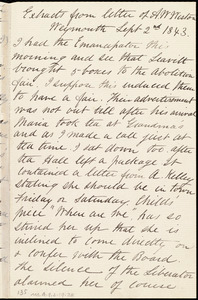 Extract from letter of A W Weston
Weymouth Sept. 2nd 1843.
I had the Emancipator this
morning and see that Leavitt
brought 5 boxes to the Abolition
fair, I suppose this induced them
to have a fair. Their advertisement
was not out till after his arrival
Maria took tea at
and as I made a call just at
tea time I sat down too after
tea Hall left a package It
contained a letter from A. Kelley
stating she should be in town
Friday or Saturday. Childs'
piece "Where are we" has so
stirred her up that she is
inclined to come directly on
& confer with the Board.
The silence of the Liberator
alarmed her of course